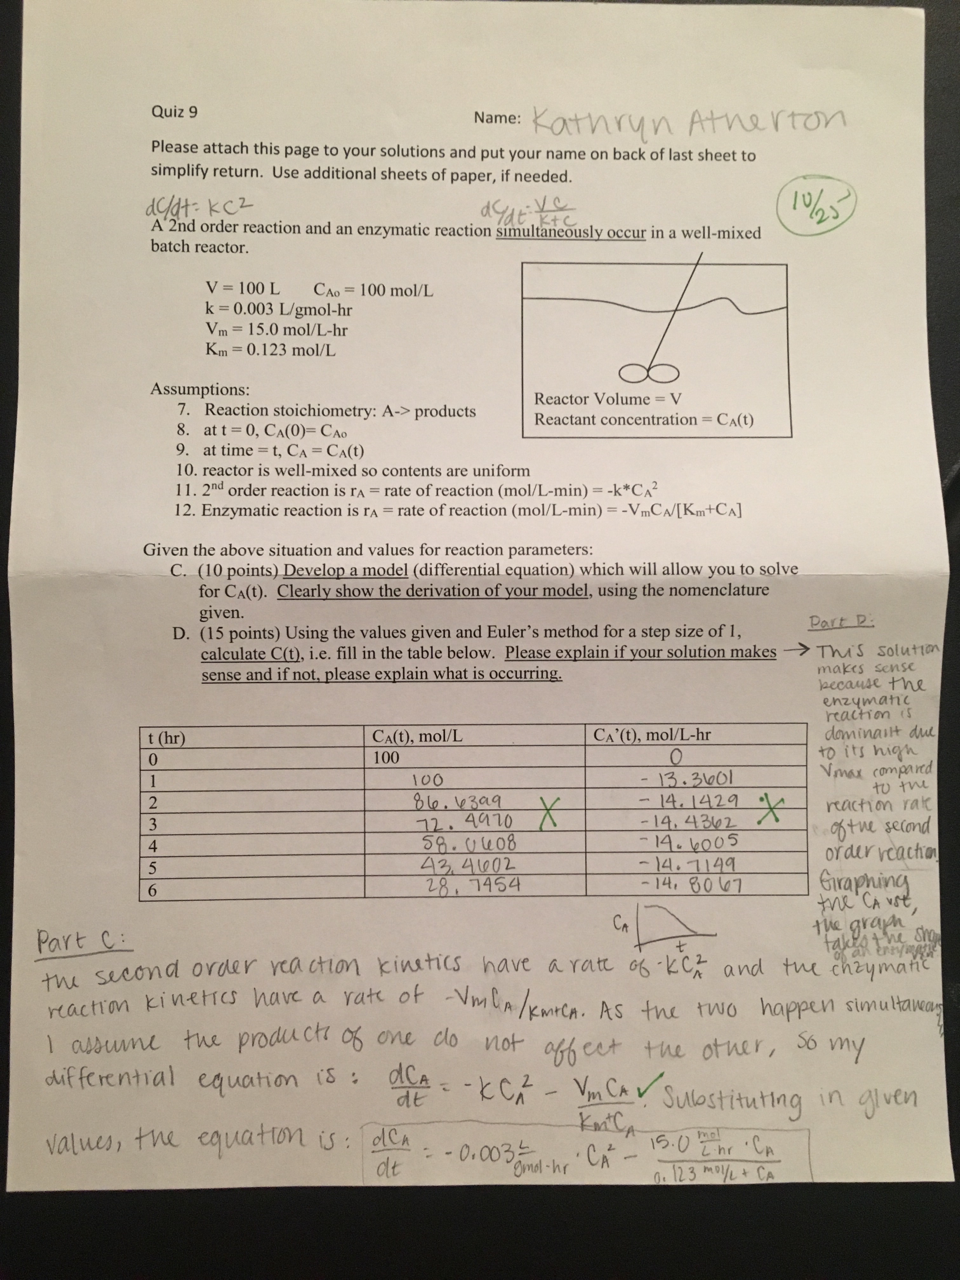 Quiz 9
Name: Kathryn Atherton
Please attach this page to your solutions and put your name on back of last sheet to
simplify return. Use additional sheets of paper, if needed.
10/25
dC/dt = KC²
dC/dt = VC/K+C
A 2nd order reaction and an enzymatic reaction simultaneously occur in a well-mixed
batch reactor.
V = 100 L CAo = 100 mol/L
k = 0.003 L/gmol-hr
Vm = 15.0 mol/L-hr
Km = 0.123 mol/L
Reactor Volume = V
Reactant concentration = CA(t)
Assumptions:
7. Reaction stoichiometry: A-> products
8. at t = 0, CA(0)= CAo
9. at time = t, CA = CA(t)
10. reactor is well-mixed so contents are uniform
11. 2nd order reaction is rA = rate of reaction (mol/L-min) = -k*CA²
12. Enzymatic reaction is rA = rate of reaction (mol/L-min) = -VmCA/[Km+CA]
Given the above situation and values for reaction parameters:
C. (10 points) Develop a model (differential equation) which will allow you to solve
for CA(t). Clearly show the derivation of your model, using the nomenclature
given.
D. (15 points) Using the values given and Euler's method for a step size of 1,
calculate C(t), i.e. fill in the table below. Please explain if your solution makes
sense and if not, please explain what is occurring.
Part D:
→ This solution
makes sense
because the
enzymatic
reaction is
dominant due
to its high
Vmax compared
to the
reaction rate
of the second
order reaction.
Graphing
the CA vs t,
the graph
takes the shape
of an enzymatic
t (hr) CA(t), mol/L CA'(t), mol/L-hr
0 100 0
1 100 -13.3601
2 86.6399 -14.1429
3 72.4970 X -14.4362 X
4 58.0608 -14.6005
5 43.4602 -14.7149
6 28.7454 -14.8067
CA
t
Part C:
the second order reaction kinetics have a rate of -kCA² and the enzymatic
reaction kinetics have a rate of -VmCA/Km+CA. As the two happen simultaneously
I assume the products of one do not affect the other, so my
differential equation is: dCA/dt = -kCA² - VmCA/Km+CA ✓. Substituting in given
values, the equation is: dCA/dt = -0.003 L/gmol-hr · CA² - 15.0 mol/L·hr · CA/0.123 mol/L + CA